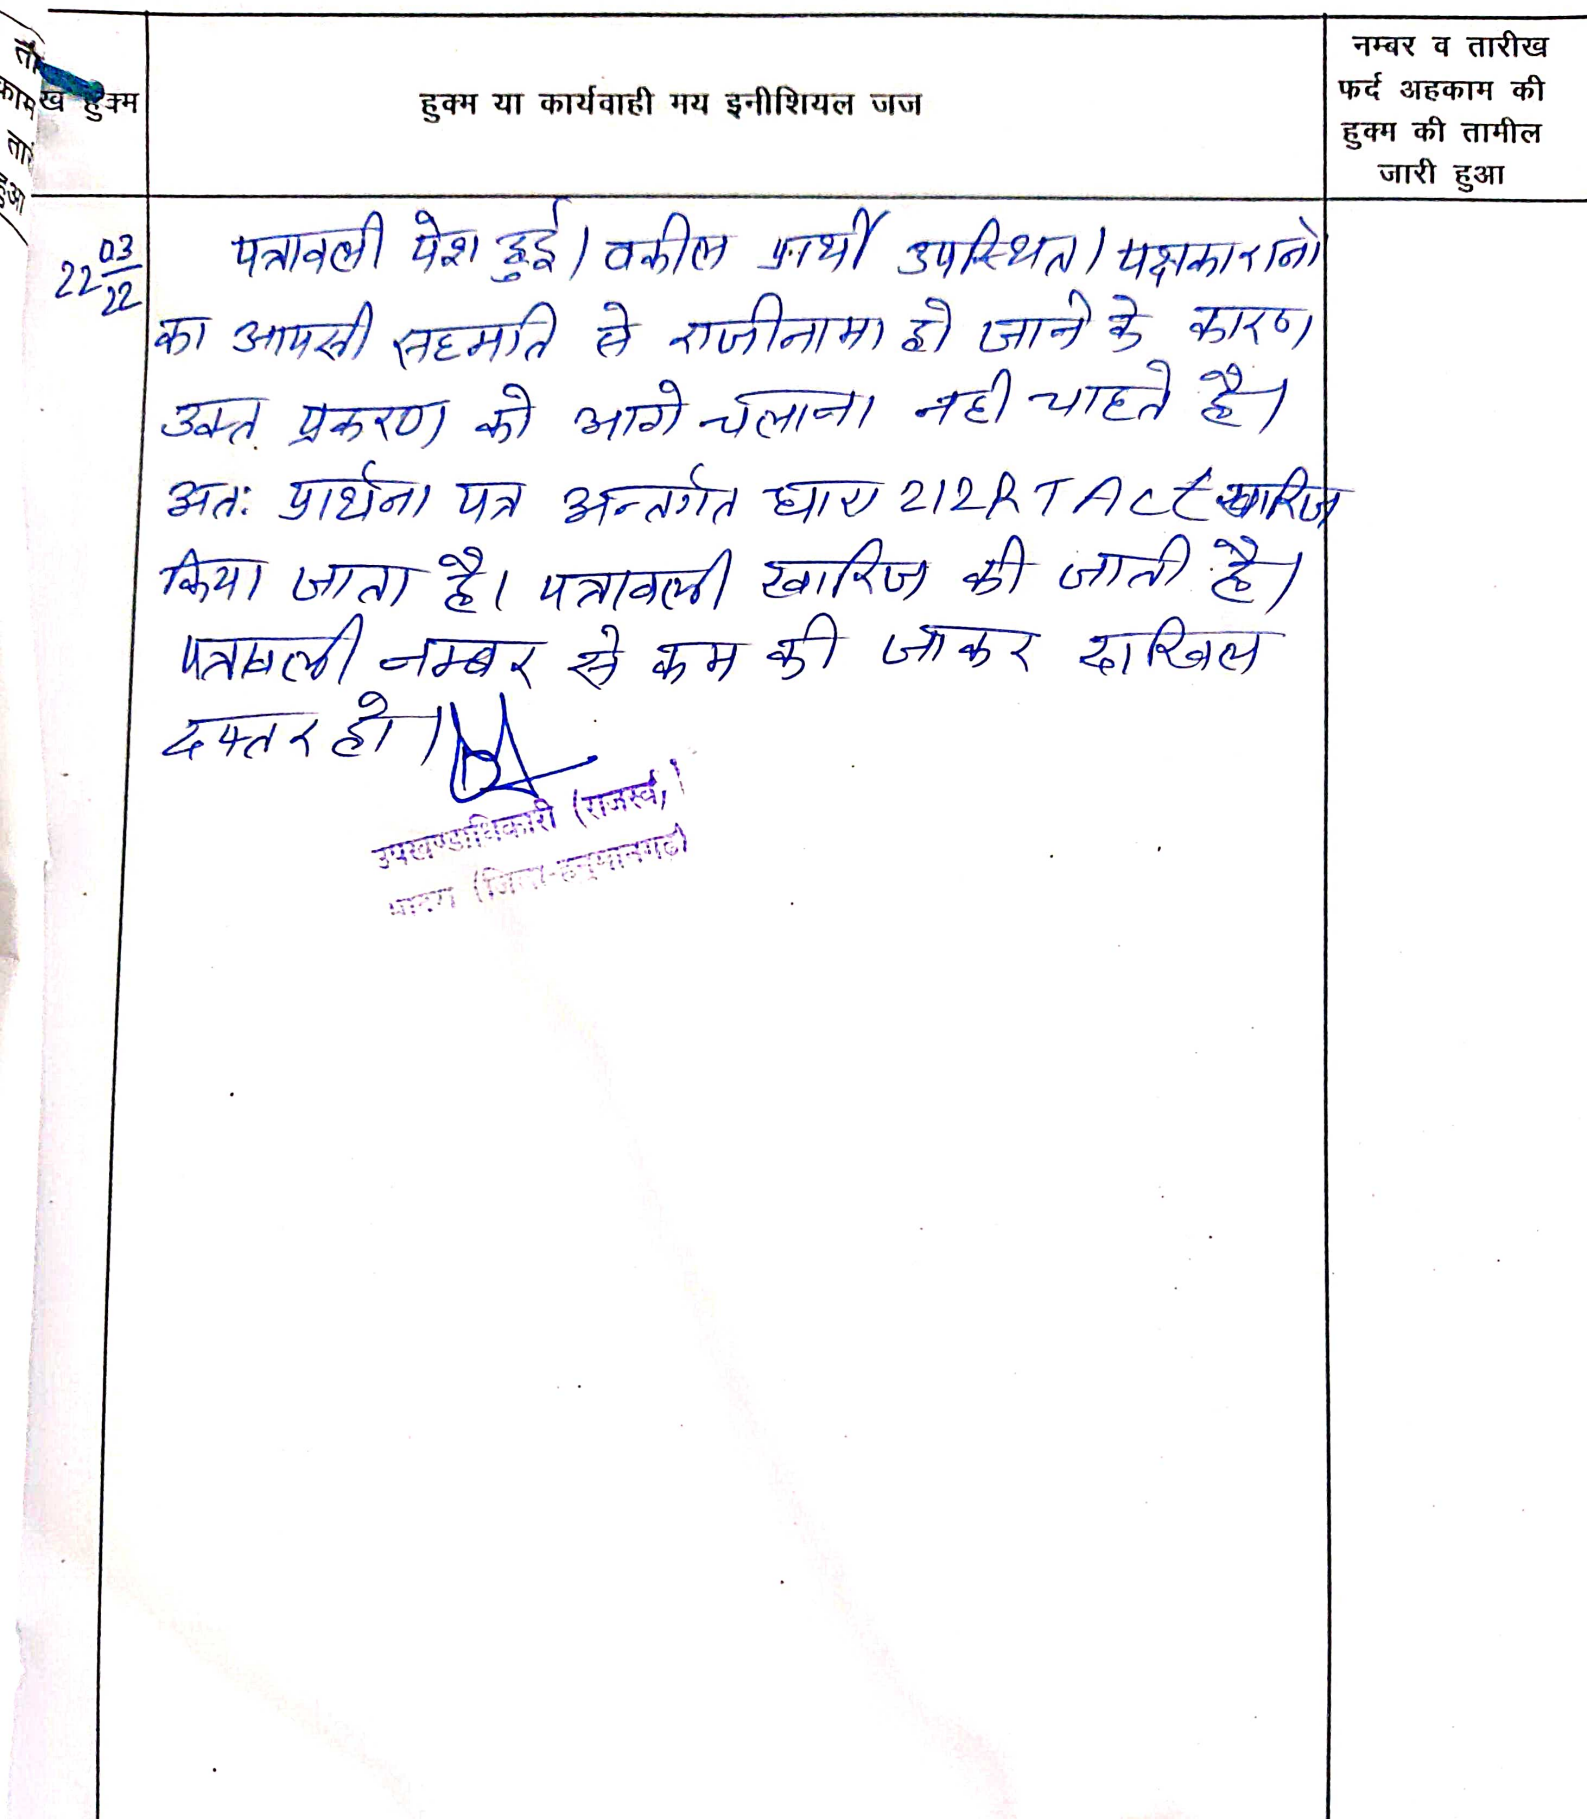 ख हुक्म
हुक्म या कार्यवाही मय इनीशियल जज
नम्बर व तारीख
फर्द अहकाम की
हुक्म की तामील
जारी हुआ
22 03/22
पत्रावली पेश हुई। वकील प्रार्थी उपस्थित। पक्षकारानो
का आपसी सहमति से राजीनामा हो जाने के कारण
उक्त प्रकरण को आगे चलाना नही चाहते है।
अतः प्रार्थना पत्र अन्तर्गत धारा 212 R T Act खारिज
किया जाता है। पत्रावली खारिज की जाती है।
पत्रावली नम्बर से कम की जाकर दाखिल
दफ्तर हो।
उपखण्डाधिकारी (राजस्व)
(जिला-हनुमानगढ़)